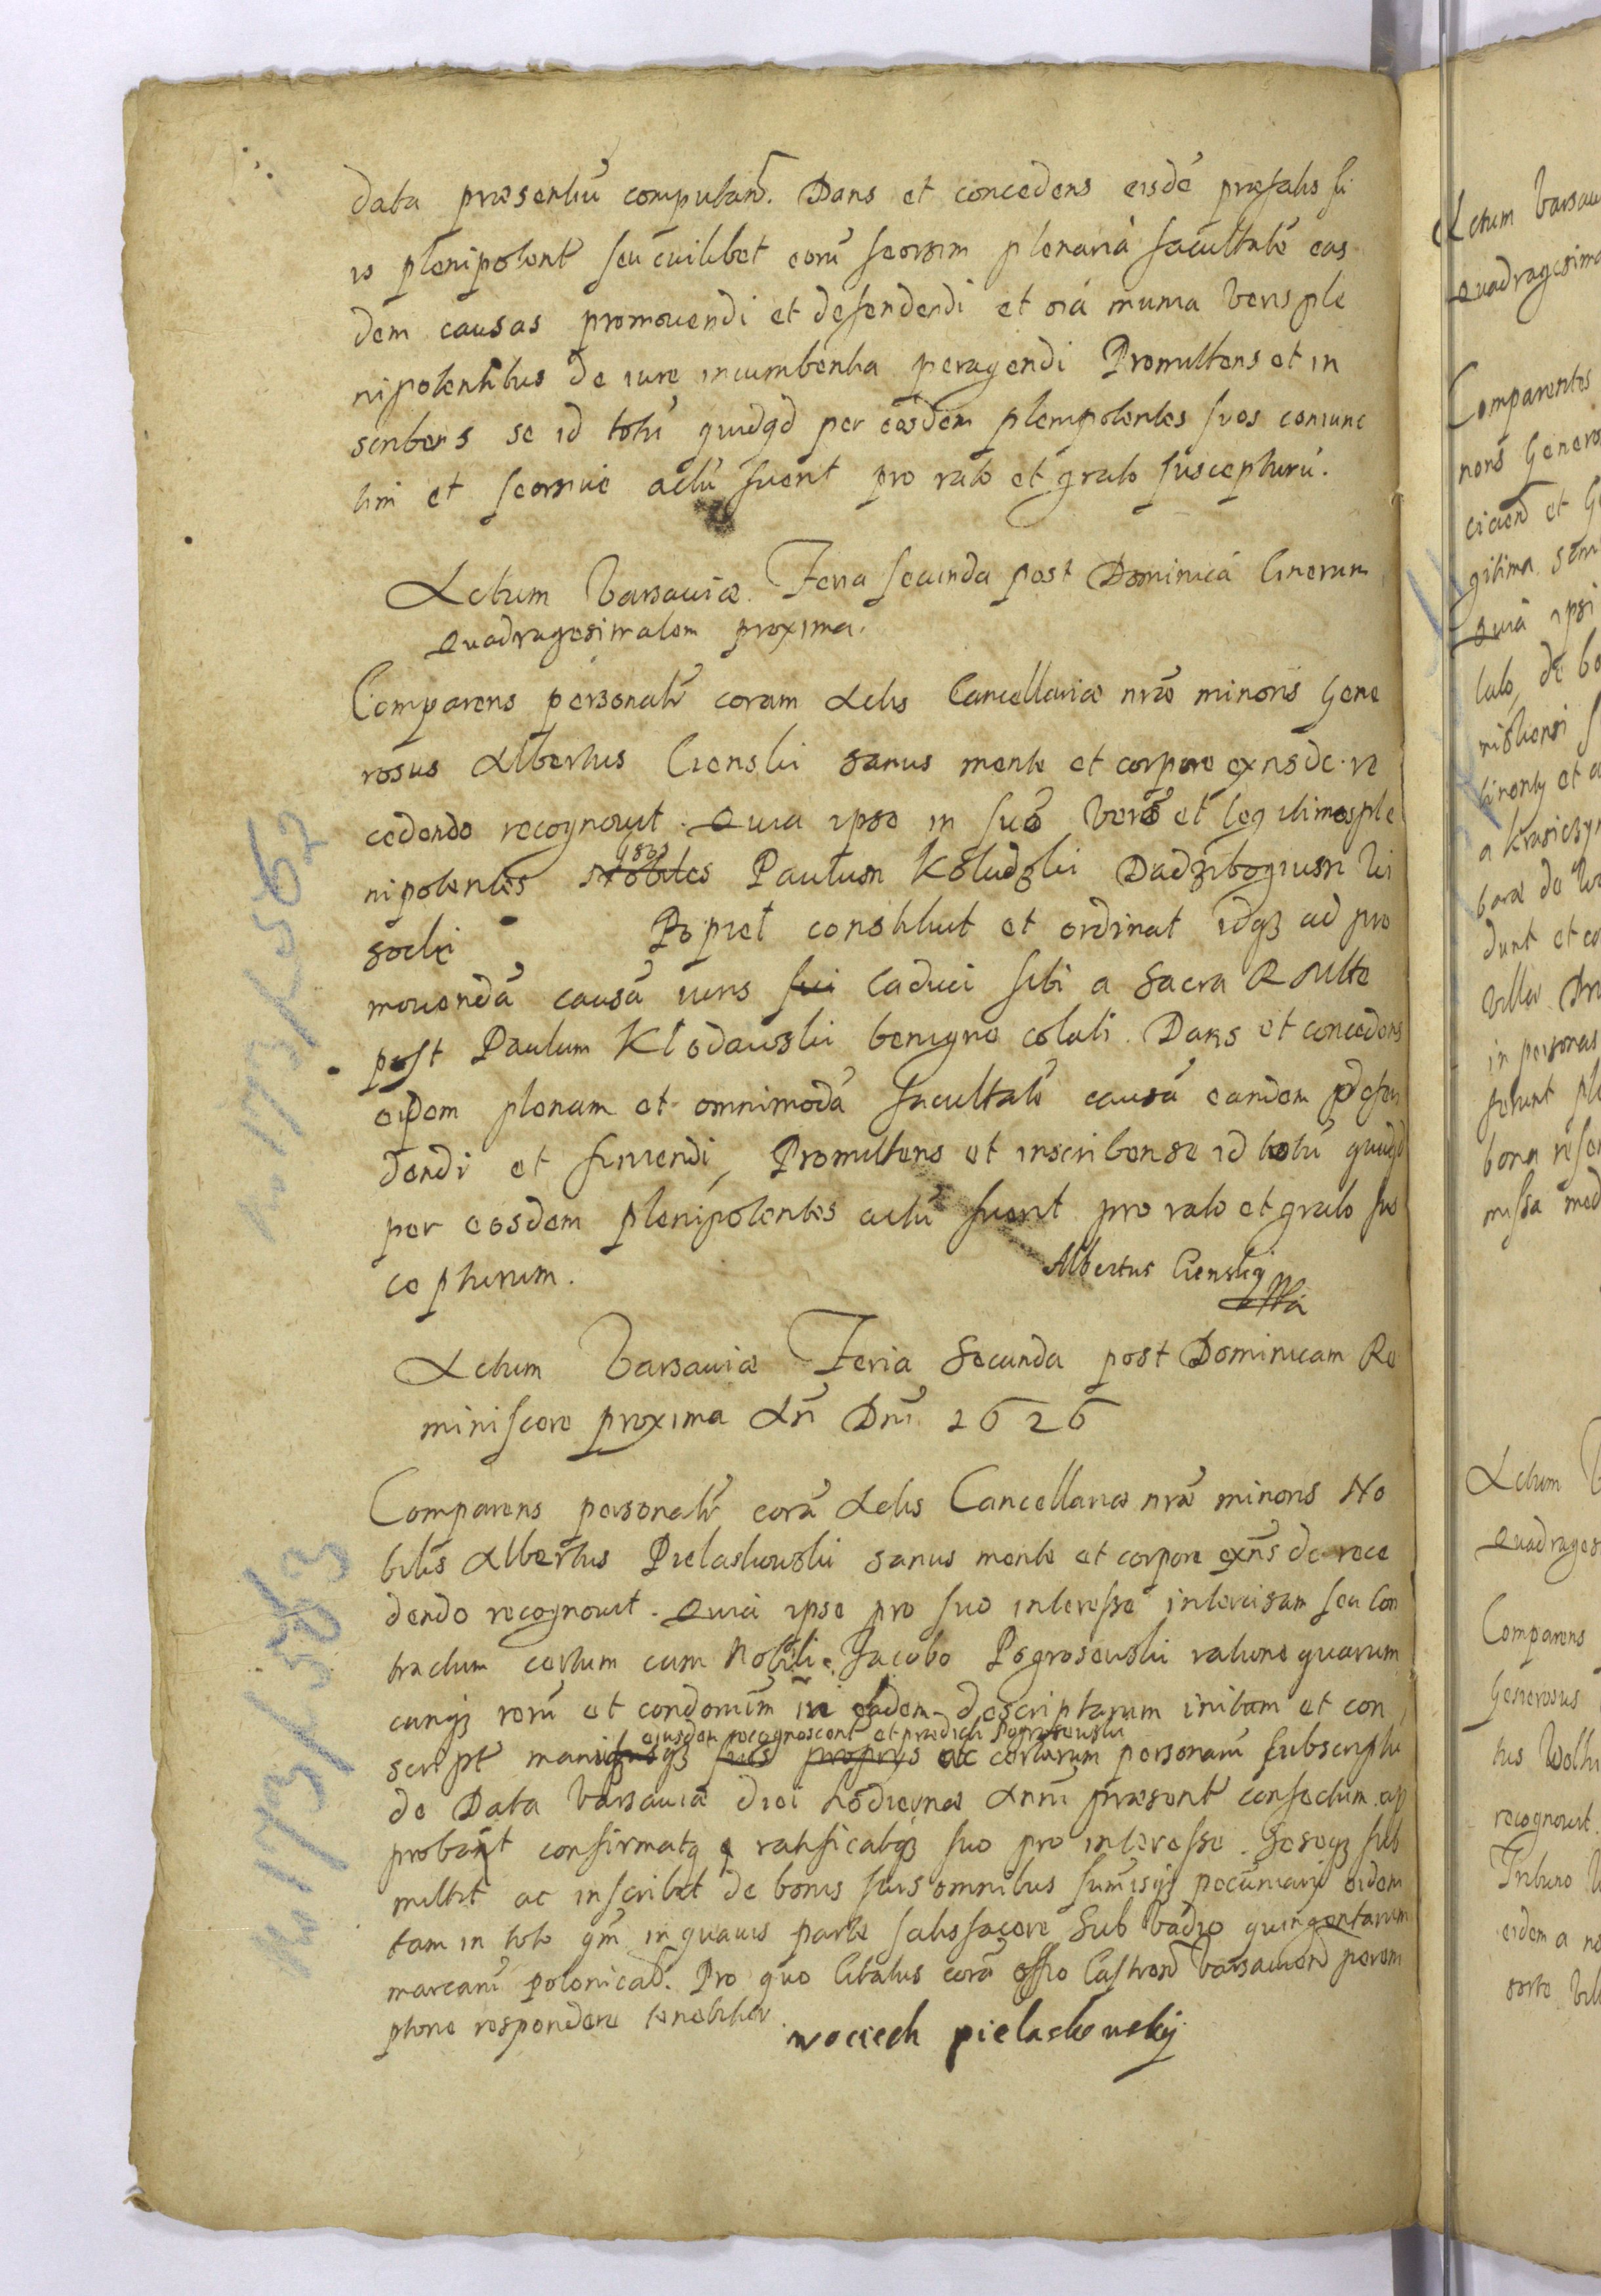 data præsentiũ computand. Dans et concedens eisdẽ præfatis su
is plenipotent seu cuilibet eorũ seorsim plenariã facultatẽ eas
dem causas promouendi et defendendi et oĩa munia veris ple
nipotentibus de iure incumbentia peragendi Promittens et in
scribens se id totũ quidqd per eosdem plenipotentes suos coniunc
tim et seorsiue actũ fuerit pro rato et grato suscepturũ.
Actum Varsauiæ Feria secunda post Dominicã Cinerum
Quadragesimalem proxima.
Comparens personalr coram Actis Cancellariæ nræ minoris Gene
rosus Albertus Cienski sanus mente et corpore exns de re
cedendo recognouit. Quia ipse in suos veros et legitimos ple
nipotentes Nobiles Paulum Koludzki Dadzibogium Wi
socki Popiel constituit et ordinat idq3 ad pro
mouendã causã iuris sui caduci sibi a Sacra R Mtte
post Paulum Kłodawski benigne colati. Dans et concedens
eisdem plenam et omnimodã facultatẽ causã eandem defen
dendi et finiendi, Promittens et inscribens se id totũ quidqd
per eosdem plenipotentes actũ fuerit pro rato et grato sus
cepturum.
Albertus Cienskij
Actum Varsauiæ Feria Secunda post Dominicam Re
miniscere proxima Añ Dni 1626
Comparens personalr corã Actis Cancellariæ nræ minoris No
bilis Albertus Pielaskowski sanus mente et corpore exns de rece
dendo recognouit. Quia ipse pro suo interesse intercisam seu con
tractum certum cum Nobili Jacobo Pogroszewski ratione quarum
cunq3 rerũ et condonum in eadem descriptarum initam et con
eiusdem recognoscent et prædicti Pogroszewski
script manibusq3 suis proprys ac certarum personarũ subscripti
de Data Varsauiæ diei hodiernæ Anni præsent confectum ap
probat confirmatq ratificatq3 suo pro interesse. Seseq3 sub
mittit ac inscribit de bonis suis omnibus summisq3 pecuniarijs eidem
tam in toto qm in quauis parte satisfacere Sub vadio quingentarum
marcarũ polonicad. Pro quo citatus corã offo Castren Varsauien perem
ptorie respondere tenebitur.
wociech pielaskowskij
Actum Varsau
Quadragesima
Comparentes
gitima
Quia ipsi
a Krasiczyn
dunt et co
in personas
bona
missa med
Actum V
Quadrages
Comparens
Generosus
recognouit
Tribuno
eidem a no
No 173/562
No 173/563